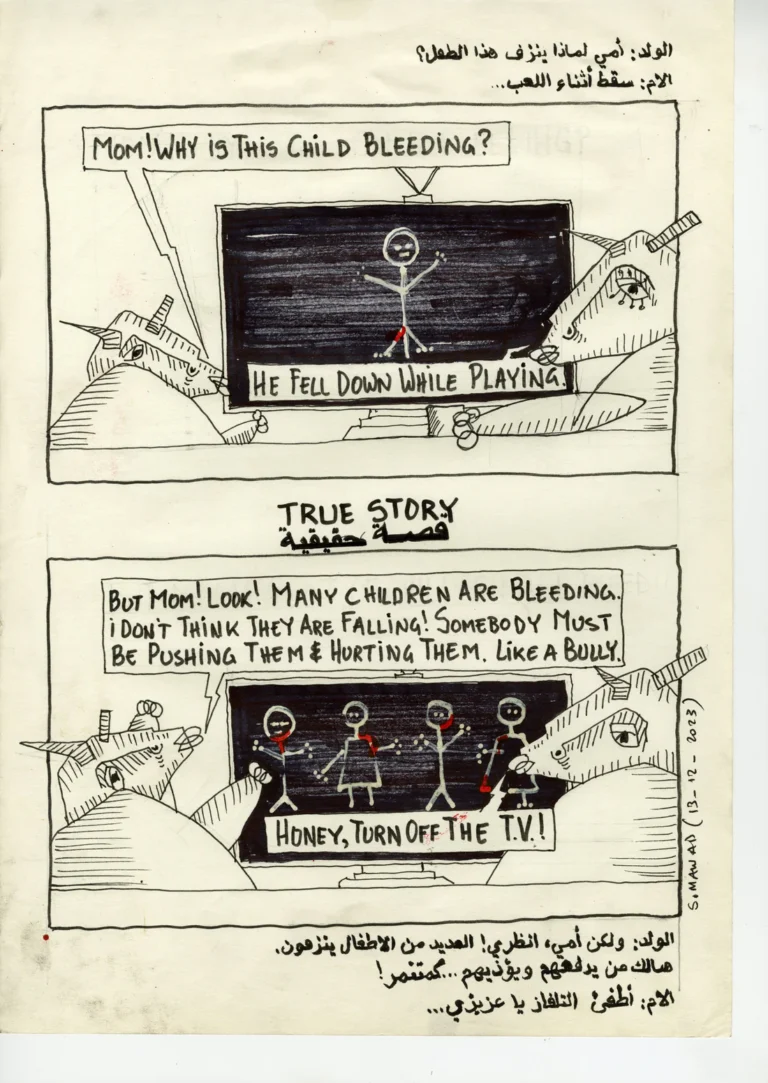 الولد: أمي لماذا ينزف هذا الطفل؟
الام: سقط أثناء اللعب...
MOM! WHY iS THIS CHILD BLEEDING?
HE FELL DOWN WHILE PLAYING.
TRUE STORY
قصة حقيقية
BUT MOM! LOOK! MANY CHILDREN ARE BLEEDING.
i DON'T THINK THEY ARE FALLING! SOMEBODY MUST
BE PUSHING THEM & HURTING THEM. LIKE A BULLY.
HONEY, TURN OFF THE T.V.!
S. MAWAD (13-12-2023)
الولد: ولكن أمي، انظري! العديد من الاطفال ينزفون.
هنالك من يدفعهم ويؤذيهم...كمتنمر!
الام: أطفئ التلفاز يا عزيزي...